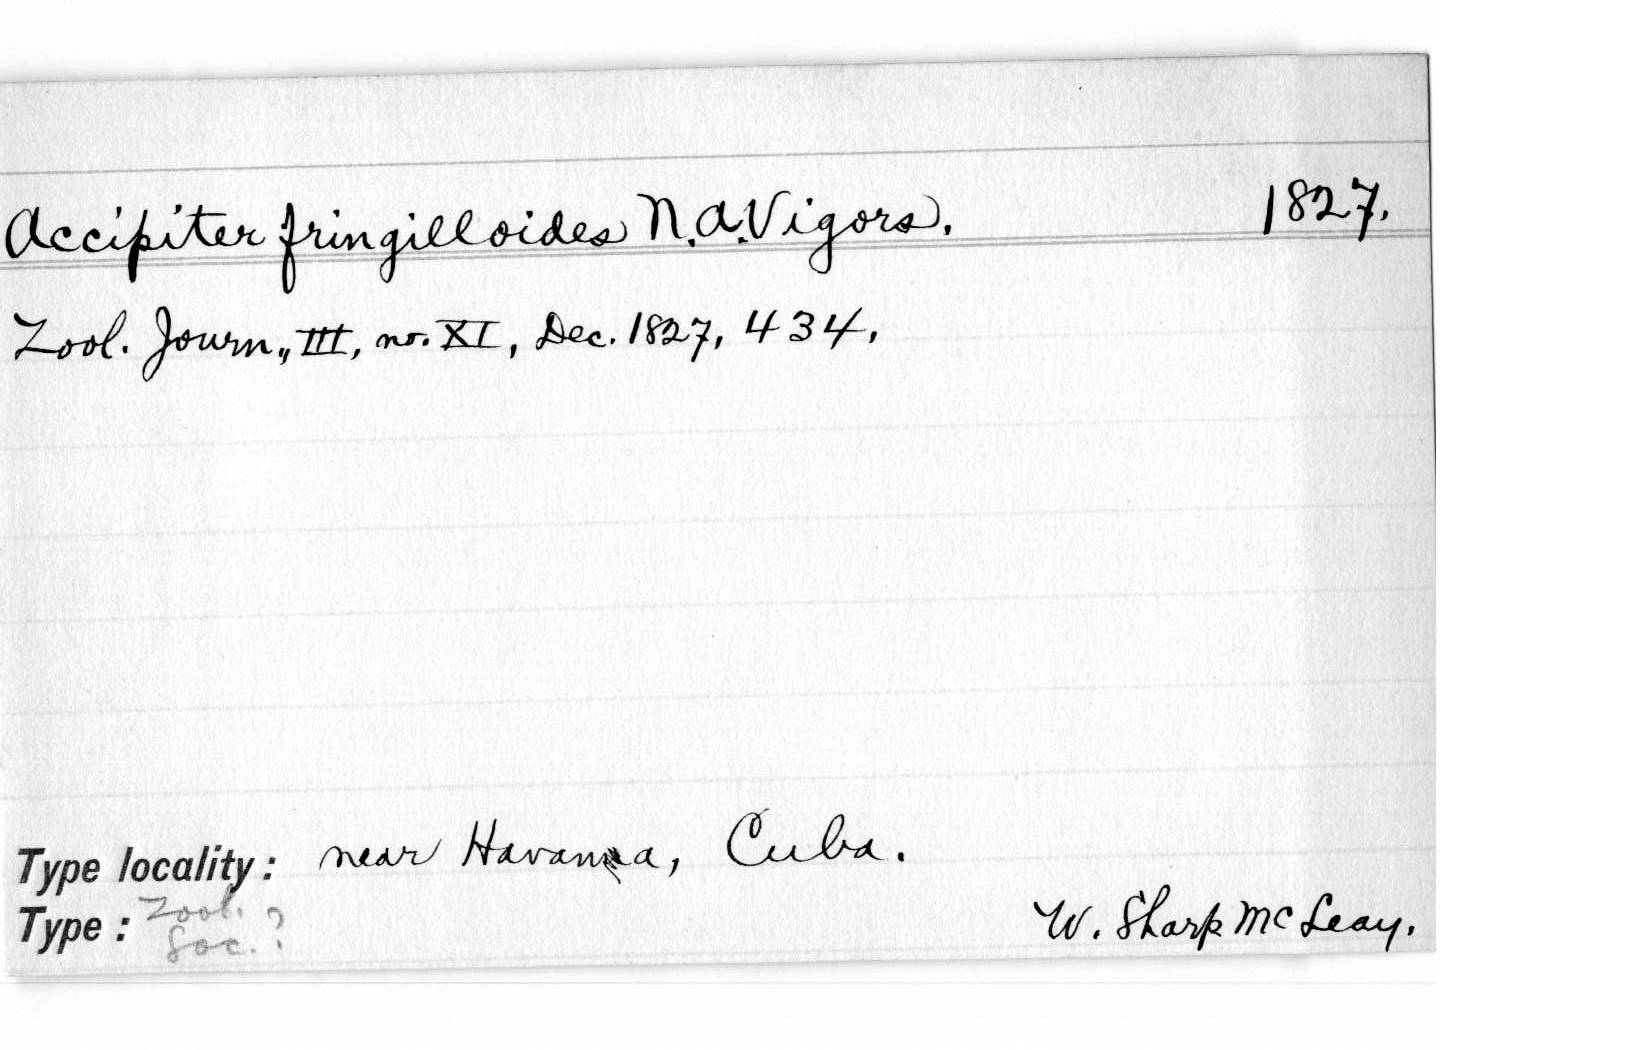 Accipiter fringilloides N.A.Vigors. 1827.
Zool. Journ., III, no. XI, Dec. 1827, 434.
Type locality: near Havanna, Cuba.
Type: Zool. Soc. ?
W. Sharp McLeay.